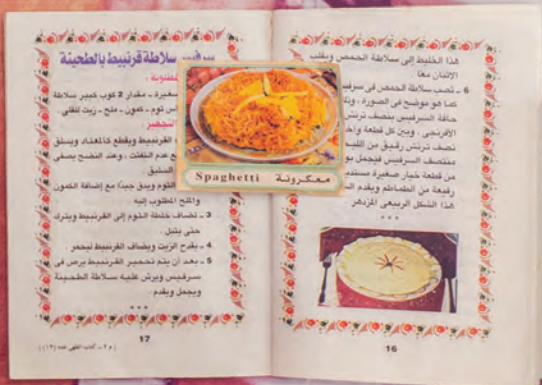 هذا الخليط إلى سلاطة الحمص ويقلب
الاثنان معًا .
6 - تصب سلاطة الحمص فى سرفيس
كما هو موضح فى الصورة ،
حافة السرفيس بنصف ترنش
الأفرنجى . وبين كل قطعة
نصف ترنش رقيق من
منتصف السرفيس فيجمل
من قطعة خيار صغيرة
رفيعة من الطماطم ويقدم
هذا الشكل الربيعى المزدهر
***
16
سرفيس سلاطة قرنبيط بالطحينة
المطلوبة :
صغيرة - مقدار 2 كوب كبير سلاطة
توم - كمون - ملح - زيت للقلى .
القرنبيط ويقطع كالمعتاد ويسلق
مع عدم التفتت . وعند النضج يصفى
السليق
التوم ويدق جيدًا مع إضافة الكمون
والملح المطلوب إليه
3 - تضاف خلطة التوم إلى القرنبيط ويترك
حتى يتبل .
4 - يقدح الزيت ويضاف القرنبيط ليحمر
5 - بعد أن يتم تحمير القرنبيط يرص فى
سرفيس ويرش عليه سلاطة الطحينة
ويجمل ويقدم .
***
17
Spaghetti معكرونة